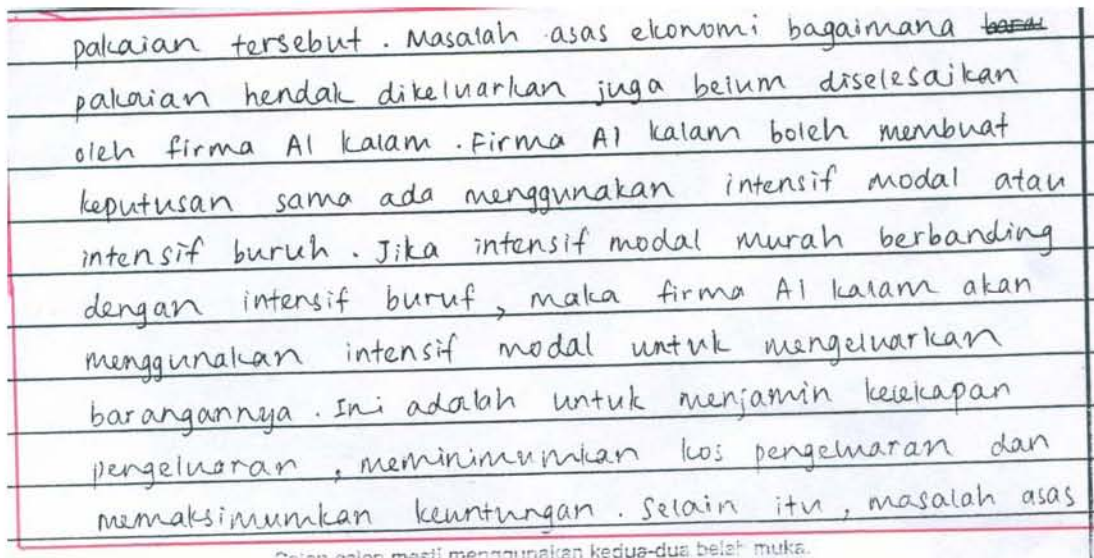 pakaian tersebut. Masalah asas ekonomi bagaimana
pakaian hendak dikeluarkan juga belum diselesaikan
oleh firma Al kalam. Firma Al kalam boleh membuat
keputusan sama ada menggunakan intensif modal atau
intensif buruh. Jika intensif modal murah berbanding
dengan intensif buruf, maka firma Al kalam akan
menggunakan intensif modal untuk mengeluarkan
barangannya. Ini adalah untuk menjamin kecekapan
pengeluaran, meminimumkan kos pengeluaran dan
memaksimumkan keuntungan. Selain itu, masalah asas
calon mesti menggunakan kedua-dua belah muka.